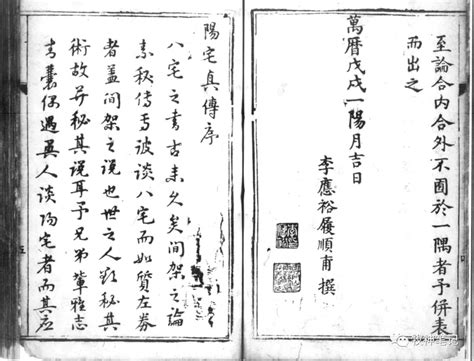 至論合内合外不囿於一隅者予併表
而出之
萬曆戊戌一陽月吉日
李應裕履順甫撰
陽宅真傳序
八宅之書古未久矣間架之論
素秘傳焉彼談八宅而如質左券
者盖間架之說也世之人欲秘其
術故并秘其說耳予兄弟輩雅志
青囊偶遇異人談陽宅者而其应